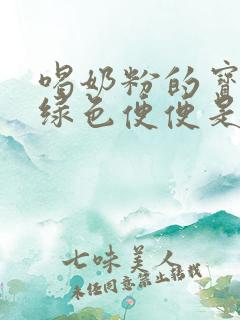 喝奶粉的宝
绿色便便是
七味美人
未经同意禁止转载